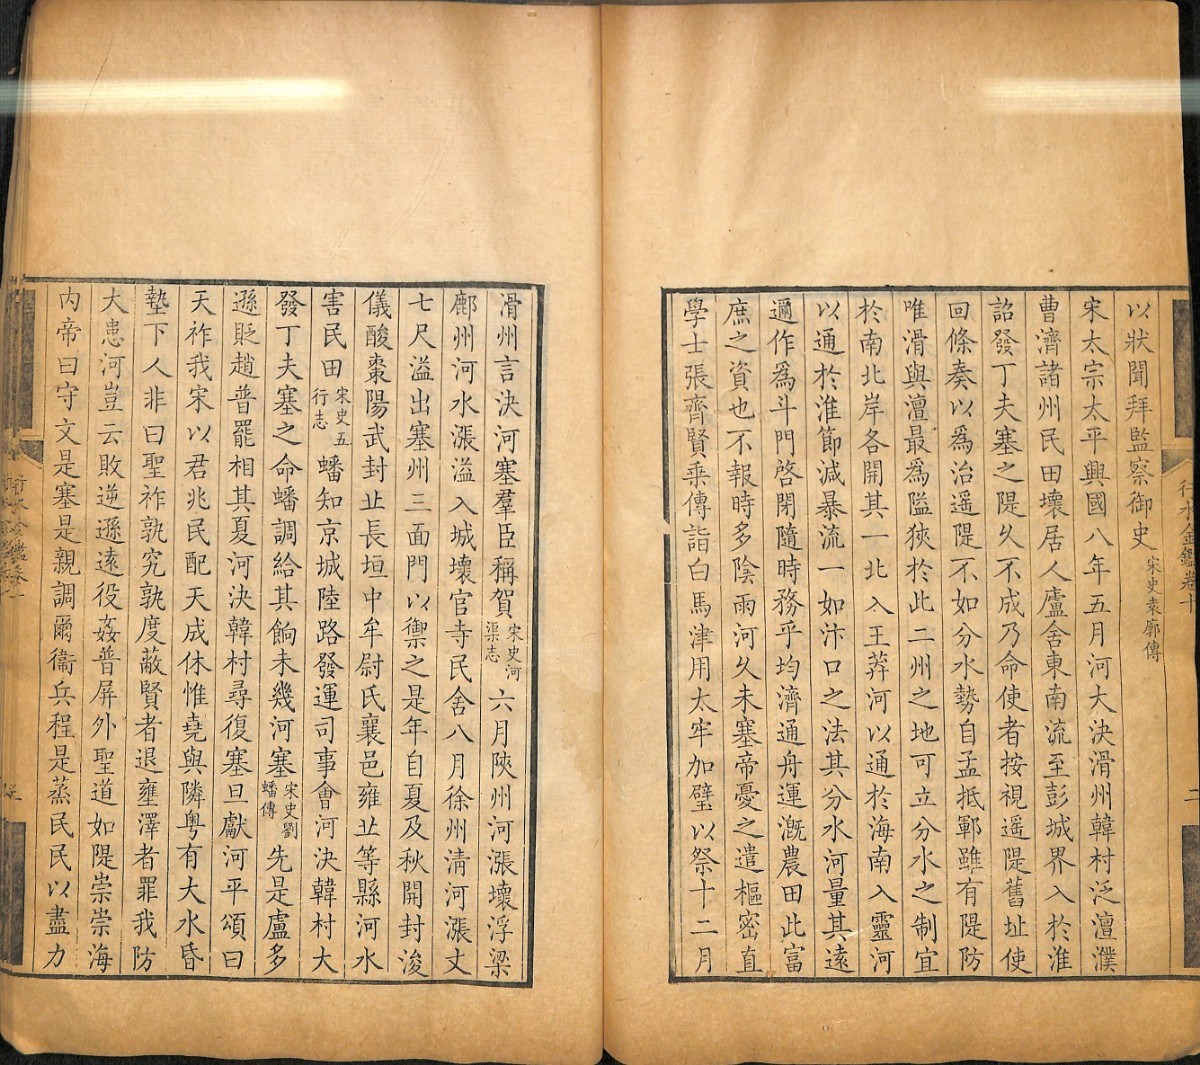 以狀聞拜監察御史宋史袁廓傳
宋太宗太平興國八年五月河大決滑州韓村泛澶濮
曹濟諸州民田壞居人廬舍東南流至彭城界入於淮
詔發丁夫塞之隄久不成乃命使者按視遥隄舊址使
回條奏以爲治遥隄不如分水勢自孟抵鄆雖有隄防
唯滑與澶最爲隘狹於此二州之地可立分水之制宜
於南北岸各開其一北入王莽河以通於海南入靈河
以通於淮節減暴流一如汴口之法其分水河量其遠
邇作爲斗門啓閉隨時務乎均濟通舟運溉農田此富
庶之資也不報時多陰雨河久未塞帝憂之遣樞密直
學士張齊賢乘傳詣白馬津用太牢加璧以祭十二月
滑州言決河塞羣臣稱賀宋史河渠志六月陝州河漲壞浮梁
鄜州河水漲溢入城壞官寺民舍八月徐州清河漲丈
七尺溢出塞州三面門以禦之是年自夏及秋開封浚
儀酸棗陽武封丘長垣中牟尉氏襄邑雍丘等縣河水
害民田宋史五行志蟠知京城陸路發運司事會河決韓村大
發丁夫塞之命蟠調給其餉未幾河塞宋史劉蟠傳先是盧多
遜貶趙普罷相其夏河決韓村尋復塞旦獻河平頌曰
天祚我宋以君兆民配天成休惟堯與隣粤有大水昏
墊下人非曰聖祚孰究孰度蔽賢者退壅澤者罪我防
大患河豈云敗逆遜遠役姦普屏外聖道如隄崇崇海
内帝曰守文是塞是親調爾衞兵程是蒸民民以盡力
行水金鑑卷十
二